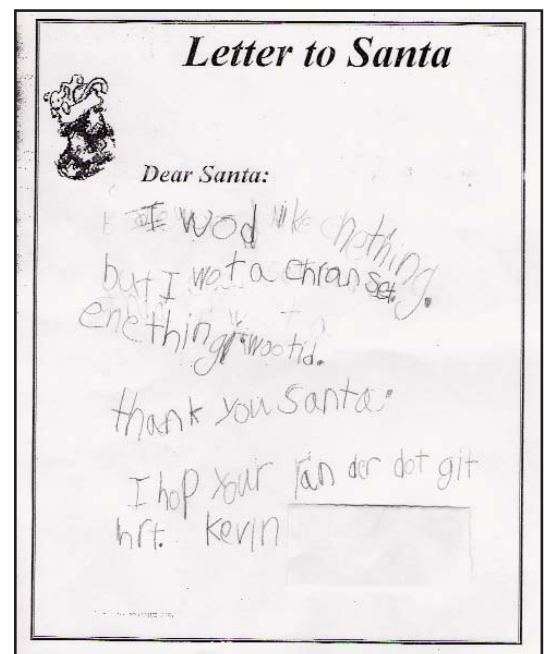 Letter to Santa
Dear Santa:
I wod like enething
but I wot a chran set.
enething
thank you Santa.
I hop your ran der dot git
hrt. Kevin